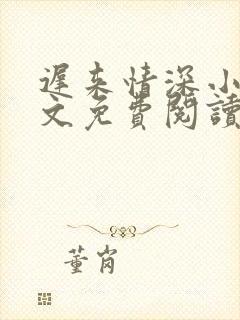 遲来情深小
文免費閱讀
董肖